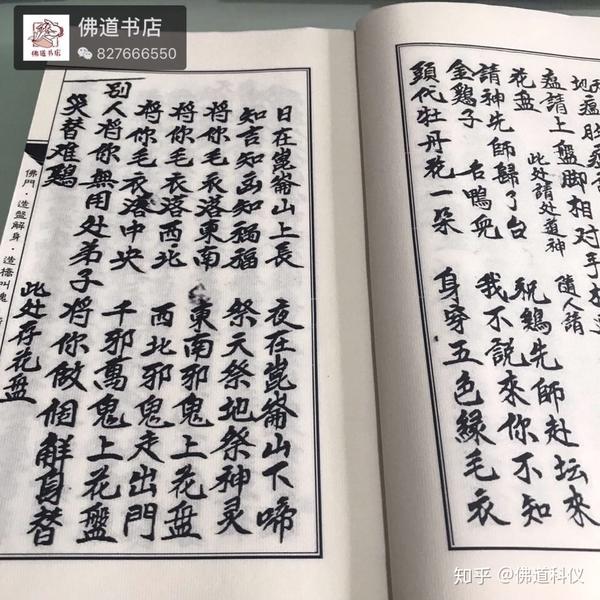 佛道书店
827666550
瘟請上盤脚相对手
花盘 此处請处道神 隨人請
請神先師歸了台 祝鷄先師赴坛来
金鷄子 我不說来你不知
頭代牡丹花一朵 身穿五色緑毛衣
日在崑崙山上長 夜在崑崙山下啼
知言知函知禍福 祭天祭地祭神灵
将你毛衣落東南 東南邪鬼上花盘
将你毛衣落西北 西北邪鬼走出門
将你毛衣落中央 千邪萬鬼上花盤
别人将你無用处 弟子将你做個解身替
哭替难鷄 此处存花盘
佛門·造盤解身·造橋叫魂
知乎 @佛道科仪